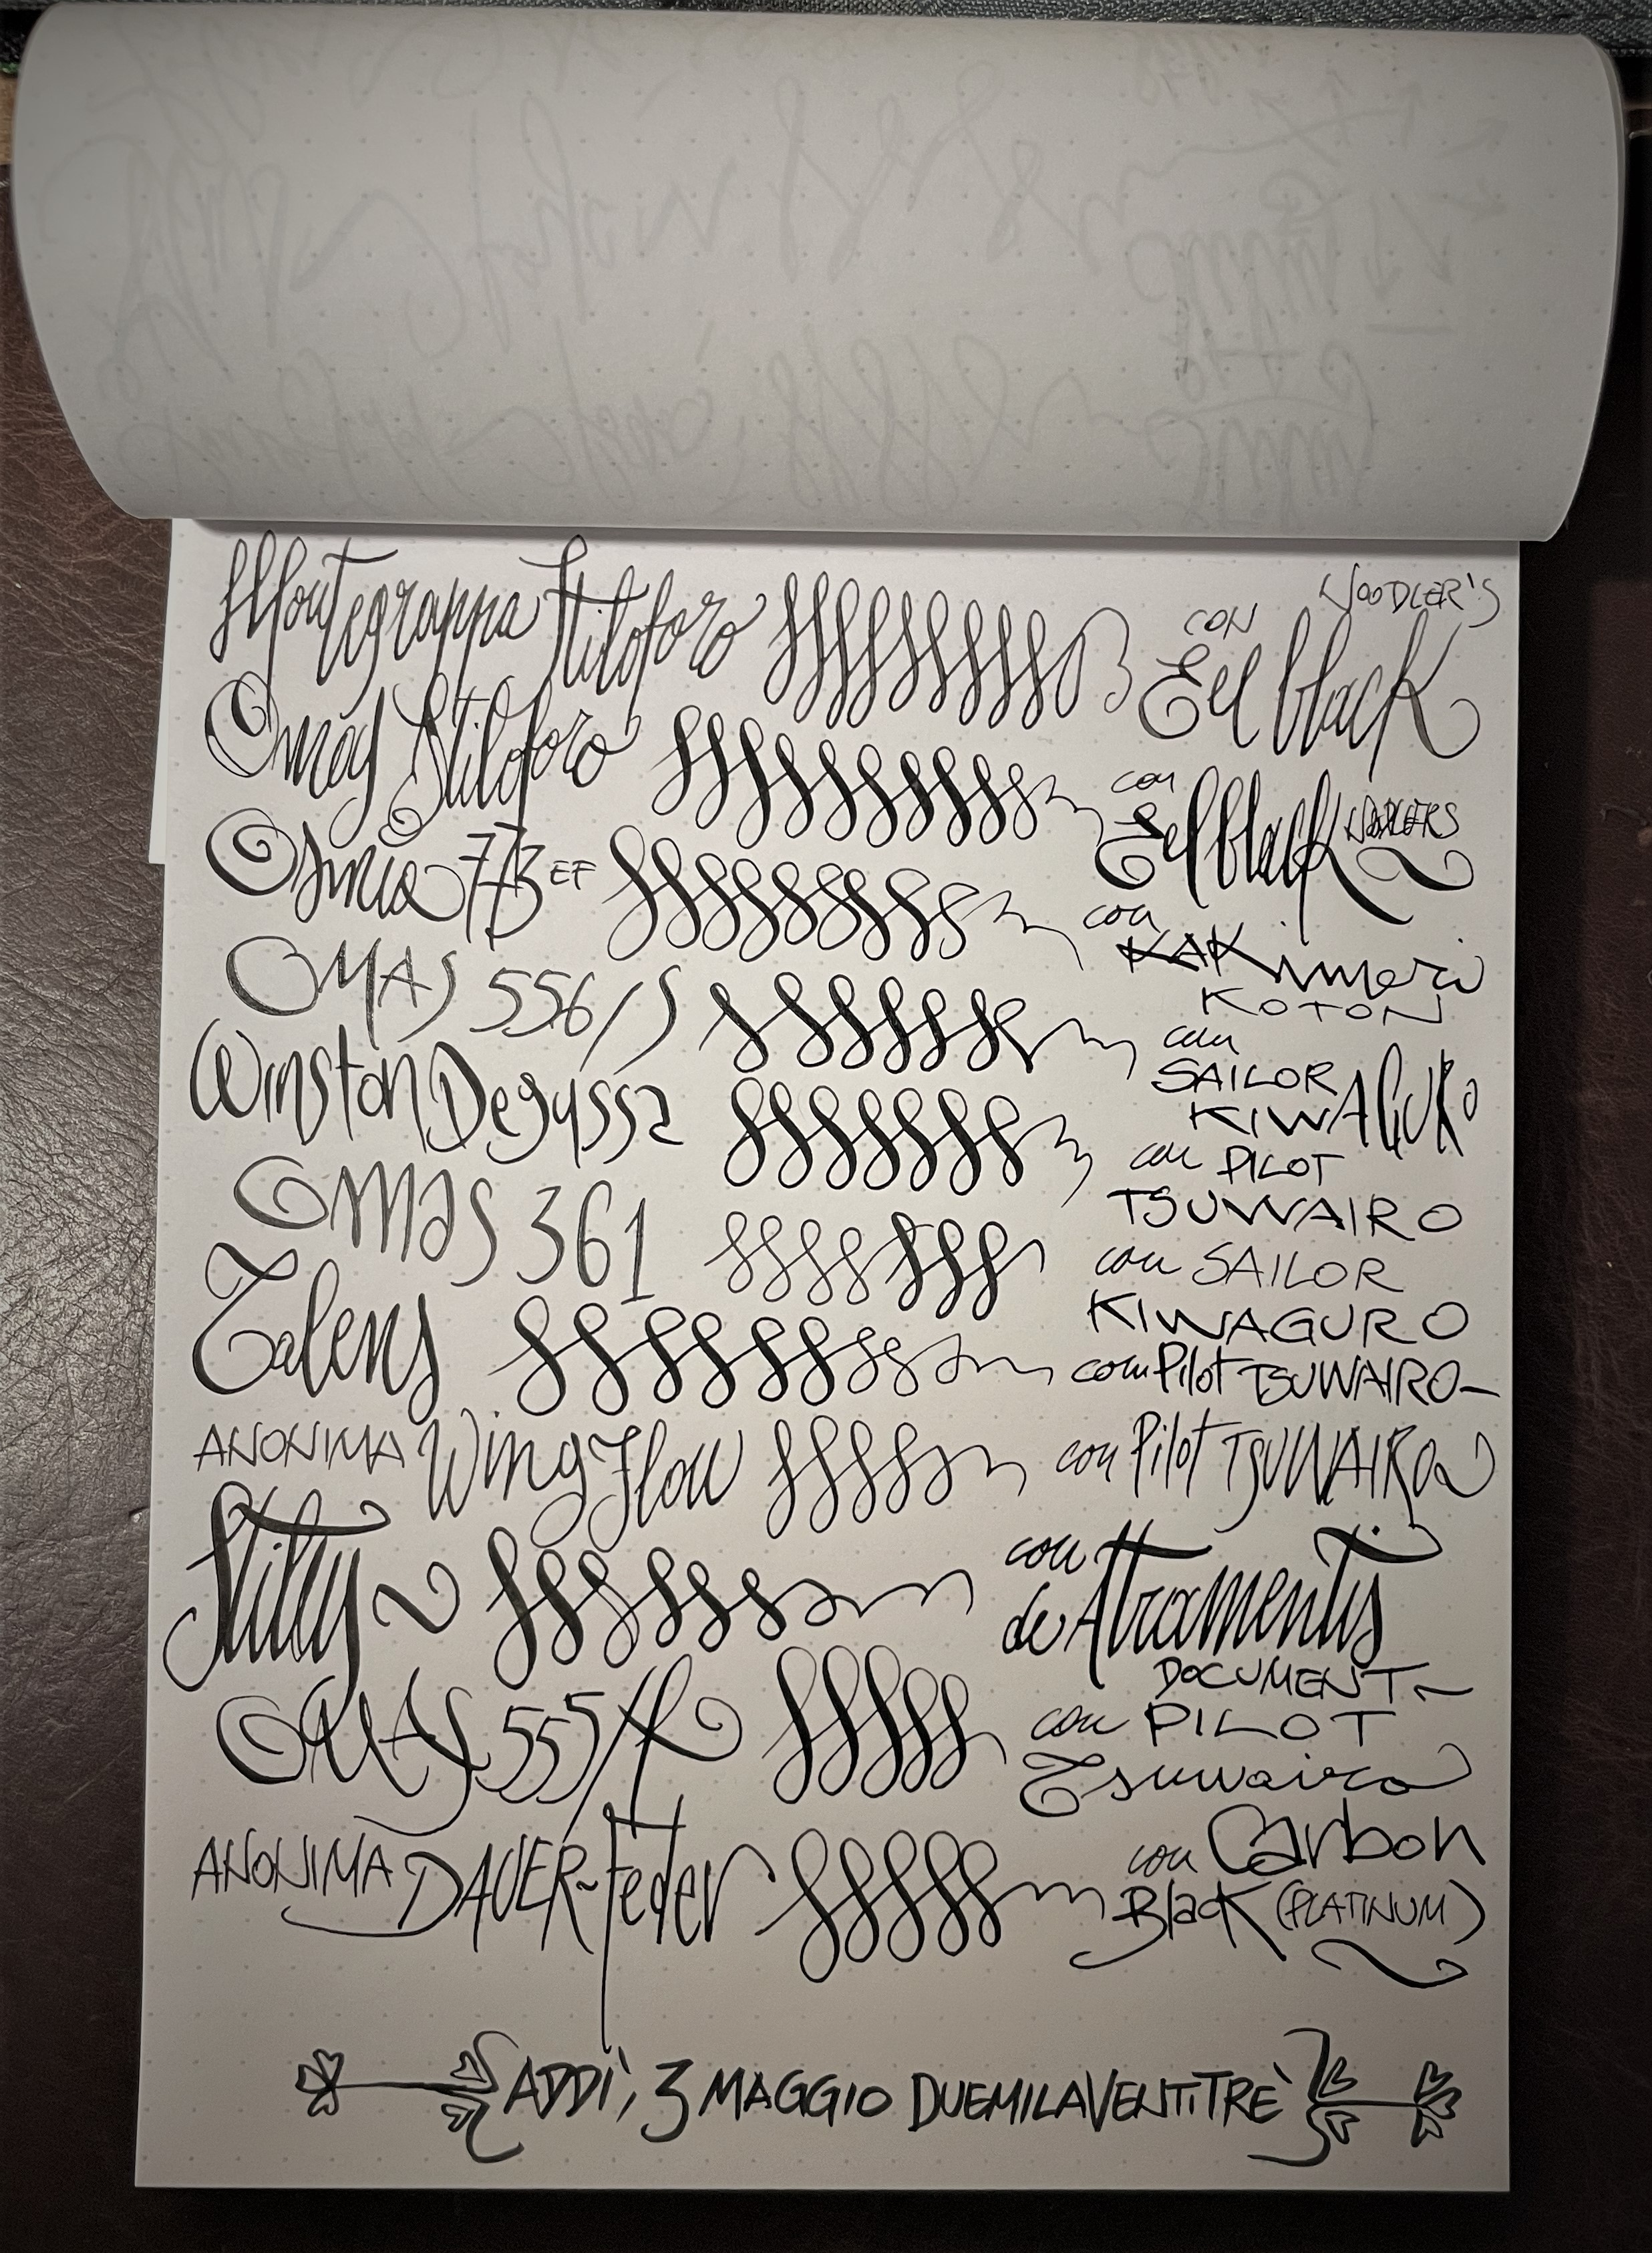 Montegrappa Stiloforo CON NOODLER'S Eel black
Omas Stiloforo con Eel black NOODLERS
Osmia 773 EF con KAKimori KOTON
OMAS 556/S con SAILOR KIWAGURO
Winston Degussa con PILOT TSUWAIRO
OMAS 361 con SAILOR KIWAGURO
Talens con Pilot TSUWAIRO
ANONIMA Wing Flow con Pilot TSUWAIRO
Stilly con de Atramentis DOCUMENT
OMAS 555/F con PILOT Tsuwairo
ANONIMA DAUER-Feder con Carbon Black (PLATINUM)
ADDI', 3 MAGGIO DUEMILAVENTITRE'